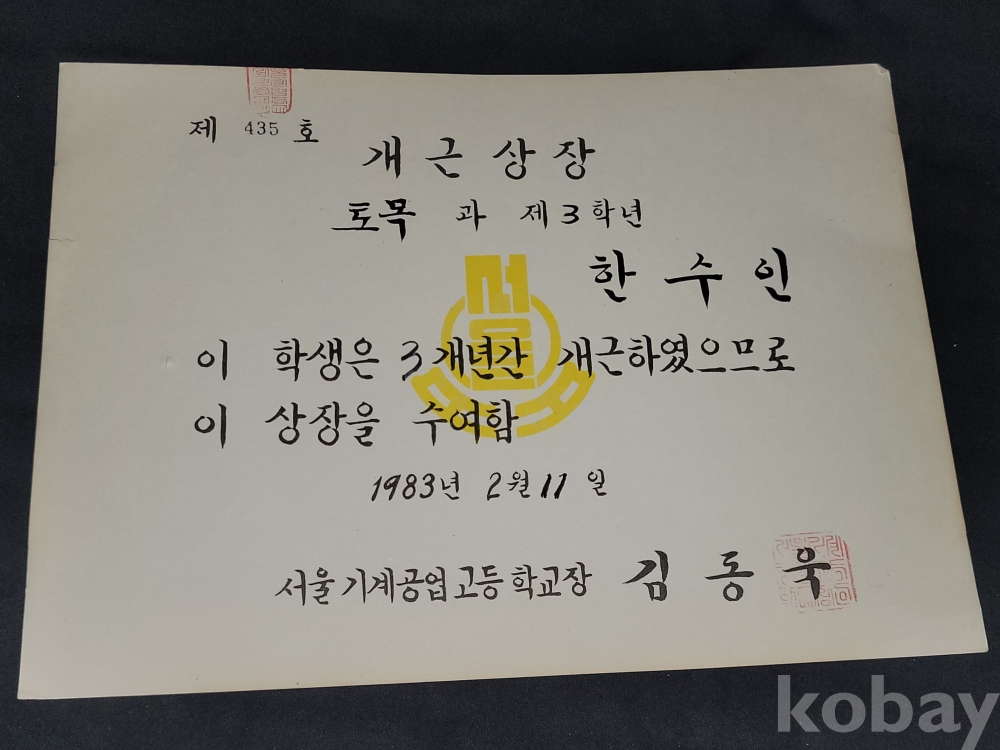 제 435 호
개근상장
토목 과 제3학년
한수인
서울
이 학생은 3개년간 개근하였으므로
이 상장을 수여함
1983년 2월 11일
서울기계공업고등학교장 김동욱
kobay